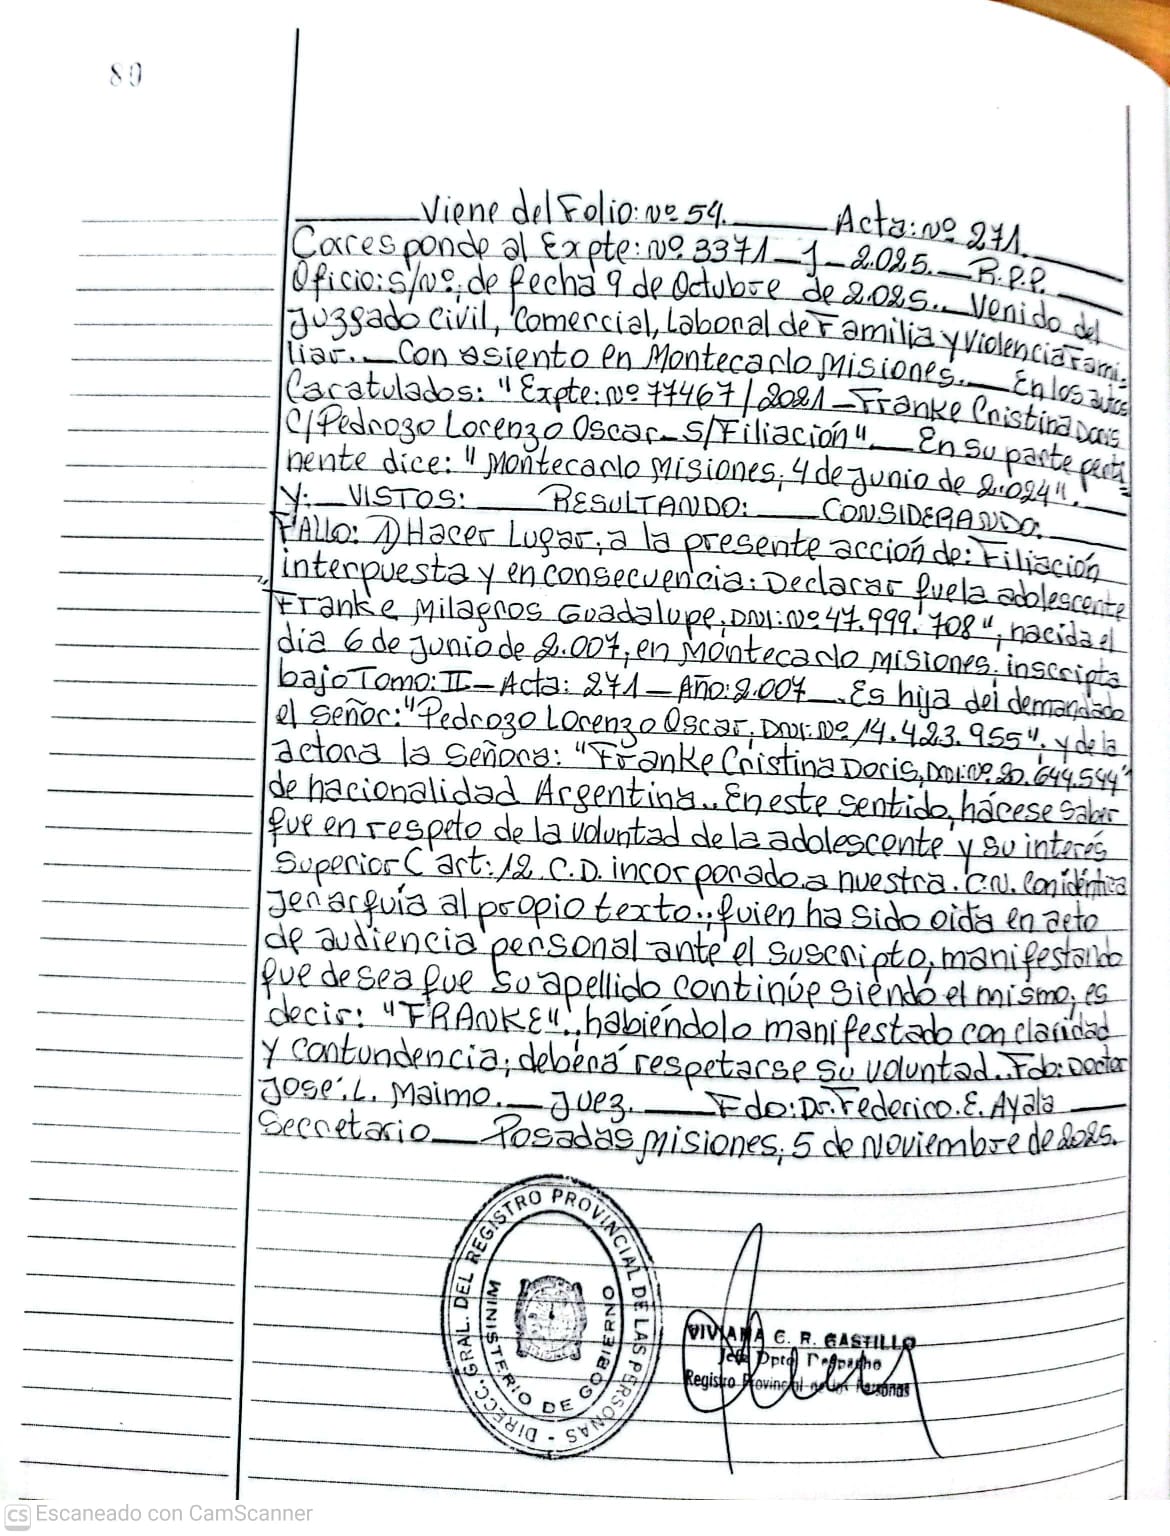 80
Viene del Folio: Nº 54. Acta: Nº 271.
Corresponde al Expte: Nº 3371-J-2.025. R.P.P.
Oficio: s/Nº; de fecha 9 de Octubre de 2.025.. Venido del
Juzgado Civil, Comercial, Laboral de Familia y Violencia Fami-
liar. Con asiento en Montecarlo Misiones. En los autos
Caratulados: "Expte: Nº 77467/2021-Franke Cristina Doris
C/Pedrozo Lorenzo Oscar- S/Filiación". En su parte perti
nente dice: "Montecarlo Misiones; 4 de Junio de 2.024".
Y: VISTOS: RESULTANDO: CONSIDERANDO:
FALLO: 1) Hacer Lugar, a la presente acción de: Filiación
interpuesta y en consecuencia: Declarar que la adolescente
"Franke Milagros Guadalupe, DNI: Nº 47.999.708", nacida el
día 6 de Junio de 2.007, en Montecarlo Misiones; inscripta
bajo Tomo: II- Acta: 271-Año: 2.007. Es hija del demandado
el señor: "Pedrozo Lorenzo Oscar, DNI: Nº 14.423.955". y de la
actora la Señora: "Franke Cristina Doris, DNI: Nº 20.644.544"
de nacionalidad Argentina.. En este sentido, hácese saber
que en respeto de la voluntad de la adolescente y su interés
Superior C art: 12 C.D. incorporado a nuestra. C.N. con idéntica
Jerarquía al propio texto.; quien ha sido oída en acto
de audiencia personal ante el suscripto, manifestando
que desea que su apellido continúe siendo el mismo; es
decir: "FRANKE". habiéndolo manifestado con claridad
y contundencia; deberá respetarse su voluntad. Fdo: Doctor
José: L. Maimo. Juez. Fdo: Dr. Federico. E. Ayala
Secretario. Posadas Misiones; 5 de Noviembre de 2025.
DIRECC. GRAL. DEL REGISTRO PROVINCIAL DE LAS PERSONAS -
MINISTERIO DE GOBIERNO
VIVIANA C. R. CASTILLO
Jefe Dpto Despacho
Registro Provincial de las Personas
CS Escaneado con CamScanner